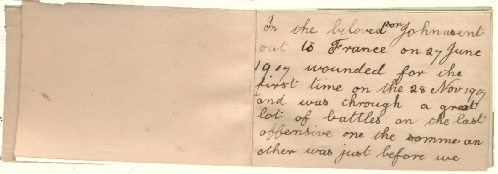 In the beloved son John went
out to France on 27 June
1917 wounded for the
first time on the 28 Nov 1917
and was through a great
lot of battles on the last
offensive one the somme an
other was just before we